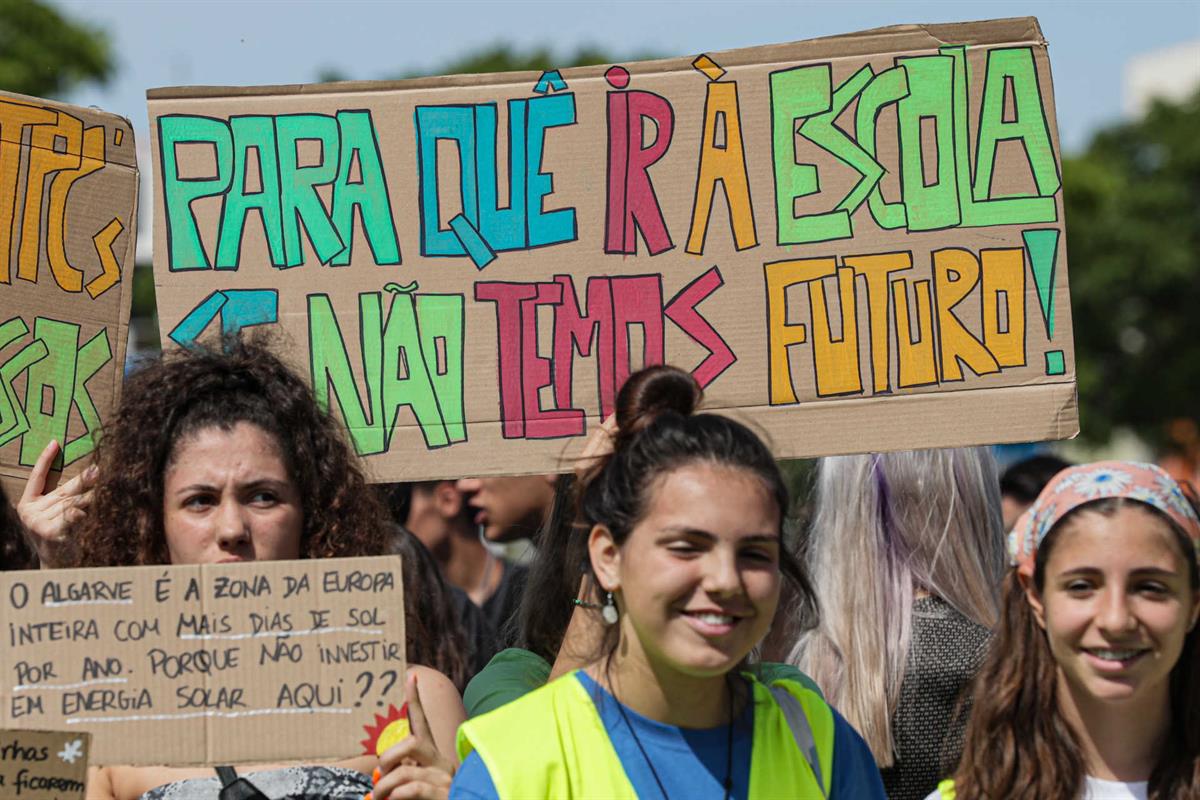 PARA QUÊ IR À ESCOLA
SE NÃO TEMOS FUTURO!
O ALGARVE É A ZONA DA EUROPA
INTEIRA COM MAIS DIAS DE SOL
POR ANO. PORQUE NÃO INVESTIR
EM ENERGIA SOLAR AQUI??
ficarem